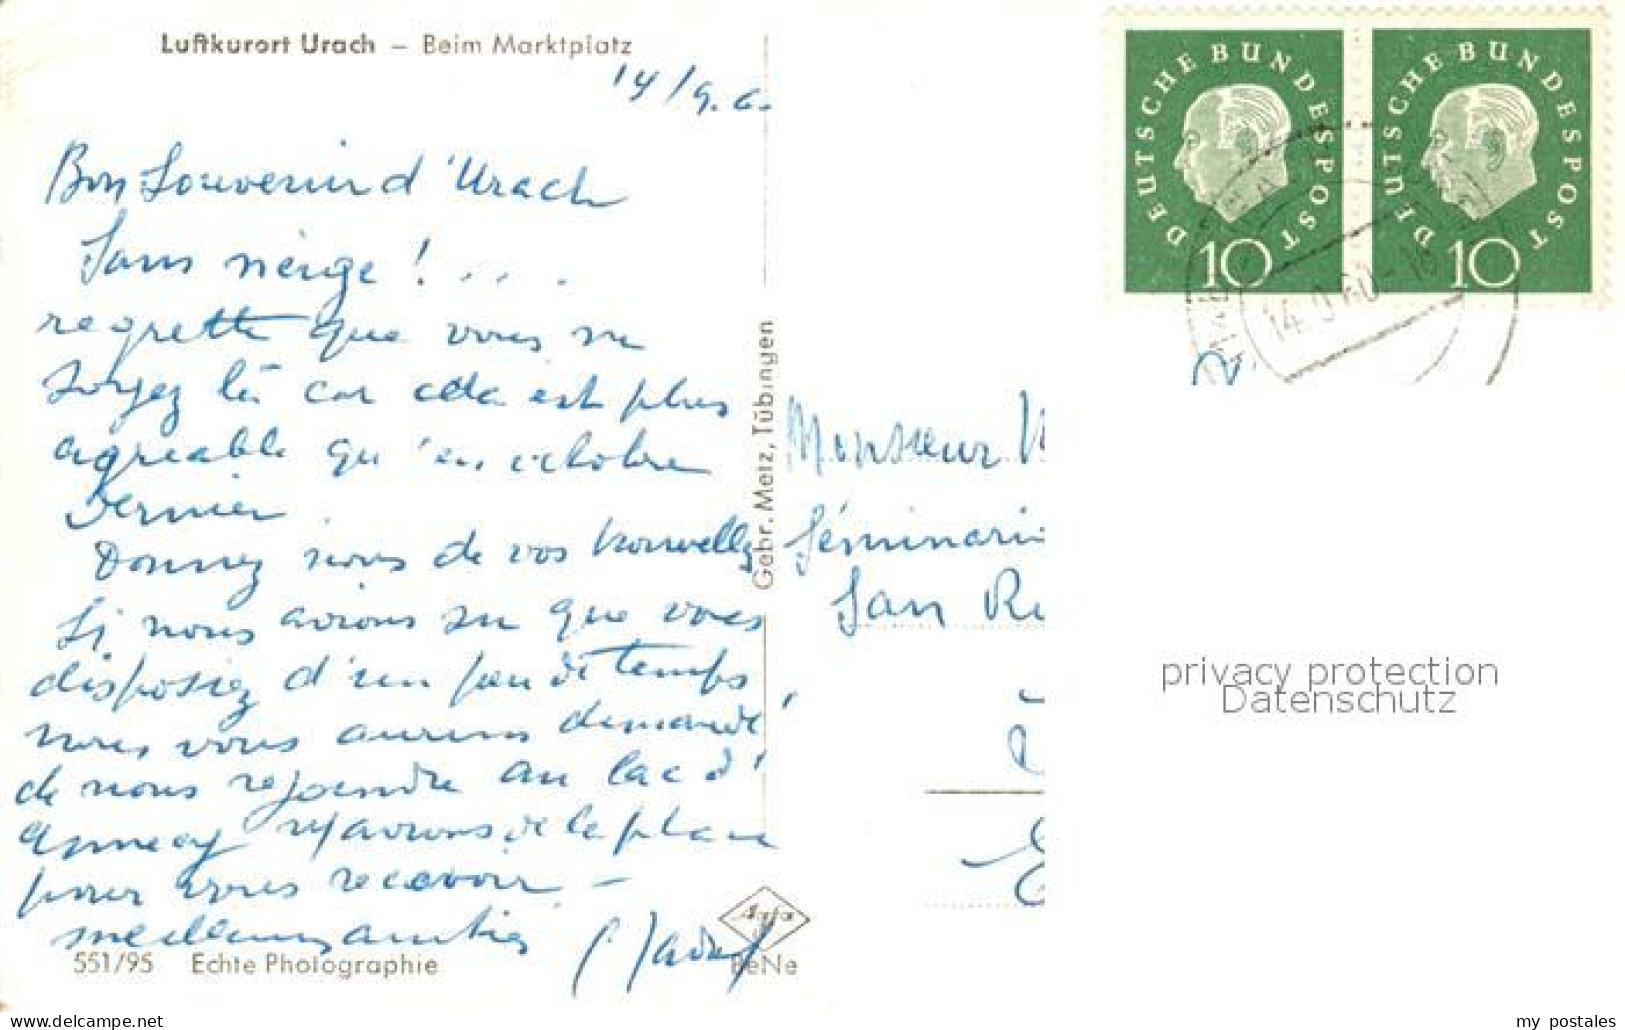 Luftkurort Urach – Beim Marktplatz
14/9.6
Bon Souvenir d'Urach
Sans neige ! . . .
regrette que vous ne
soyez là car cela est plus
agréable qu'en octobre
dernier.
Donnez nous de vos nouvelles
Si nous avions su que vous
disposiez d'un peu de temps
nous vous aurions demandé
de nous rejoindre au lac d'
Annecy avions de la place
pour vous recevoir –
meilleures amitiés
551/95 Echte Photographie
Agfa
BeNe
Gebr. Metz, Tübingen
DEUTSCHE BUNDESPOST
10
DEUTSCHE BUNDESPOST
10
14.9.60.-18
Monsieur
Séminari
San Re
privacy protection
Datenschutz
my_postales
www.delcampe.net